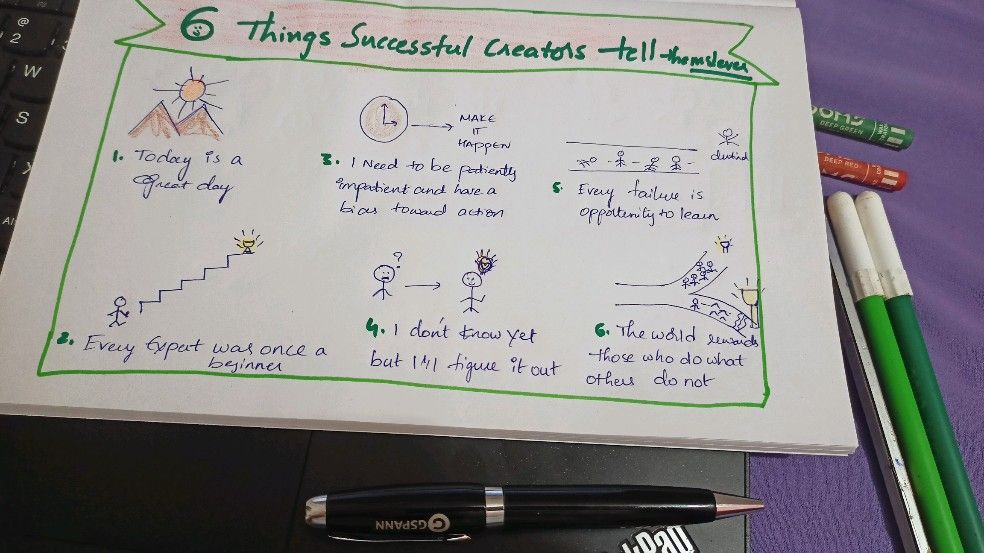 6 Things Successful Creators tell themslever
1. Today is a
Great day
2. Every Expert was once a
beginner
MAKE
IT
HAPPEN
3. I Need to be patiently
impatient and have a
bias toward action
?
4. I don't know yet
but I'll figure it out
5. Every failure is
opportunity to learn
6. The world rewards
those who do what
others do not
DEEP GREEN
DEEP RED
GSPANN
@
2
W
S
X
Alt